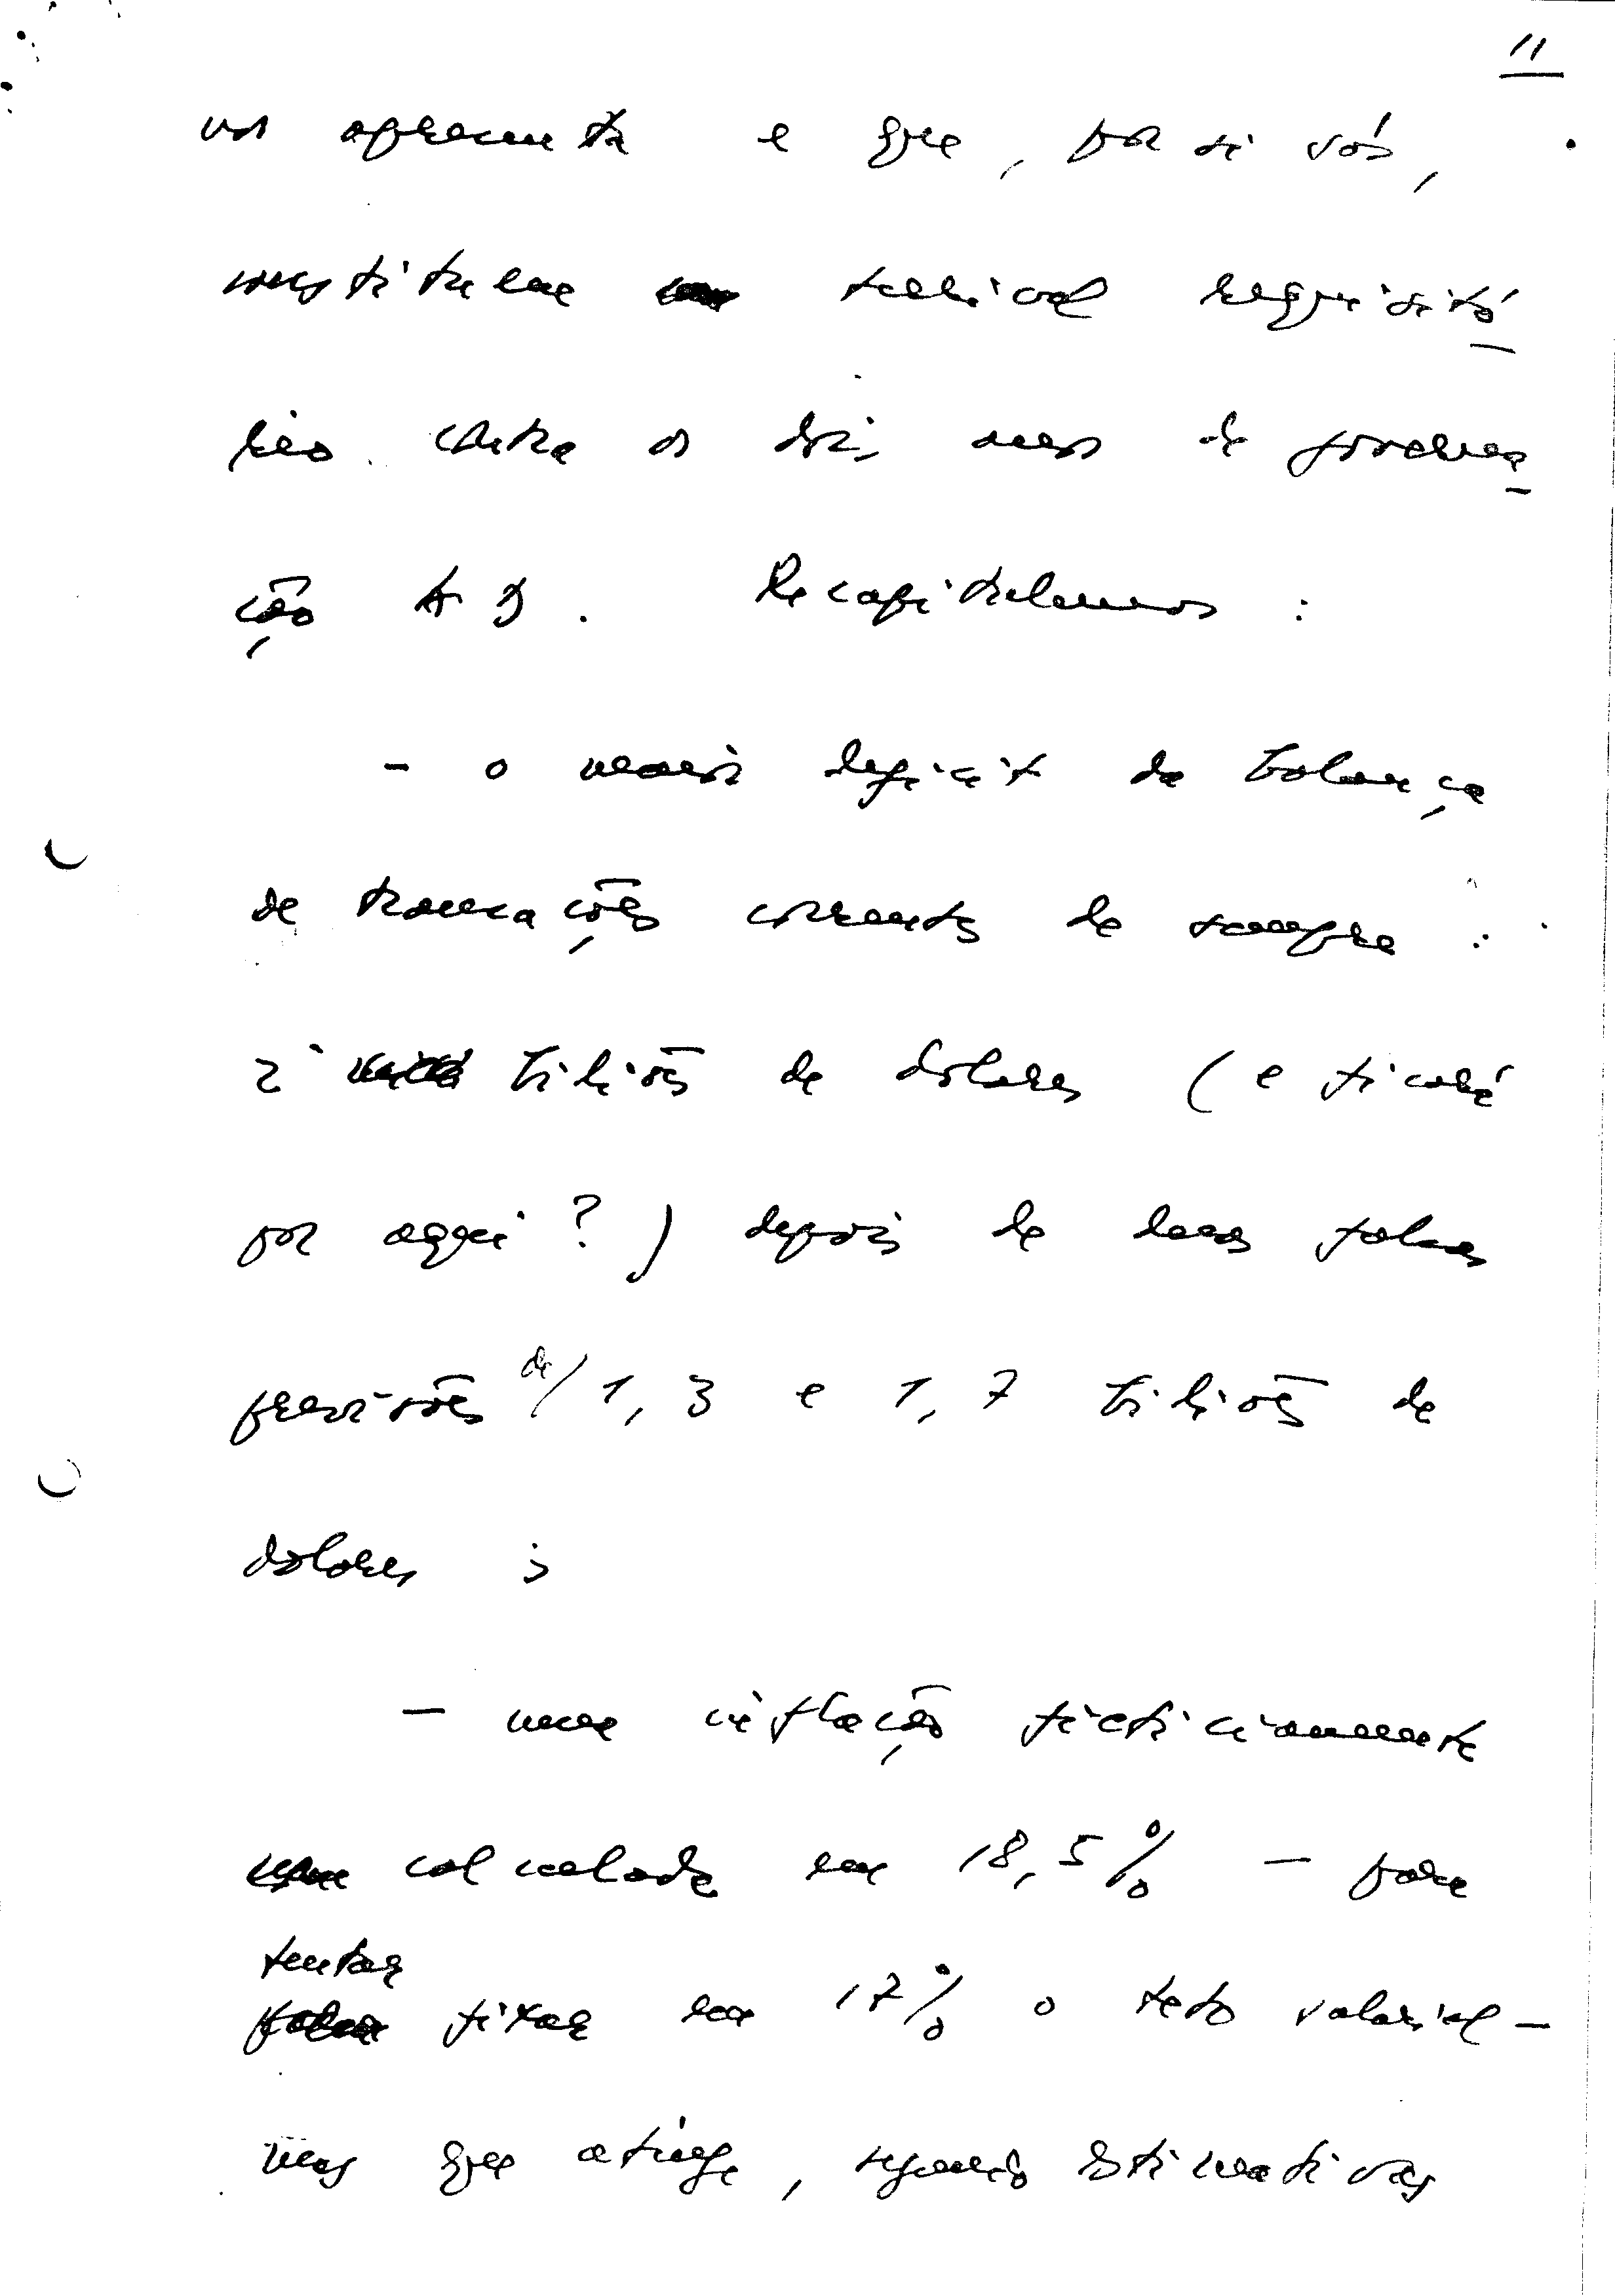 11
nos apresenta e que, por si só,
constituem terrível requisitó
rio contra os dois anos de governa
ção AD. Recapitulemos:
- o maior deficit da balança
de transacções correntes de sempre:
2 biliões de dolares (e ficará
por aqui?) depois de duas falsas
previsões de/ 1,3 e 1,7 biliões de
dolares;
- uma inflação ficticiamente
calculada em 18,5% - para
tentar
fixar em 17% o teto salarial -
mas que atinge, segundo estimativas